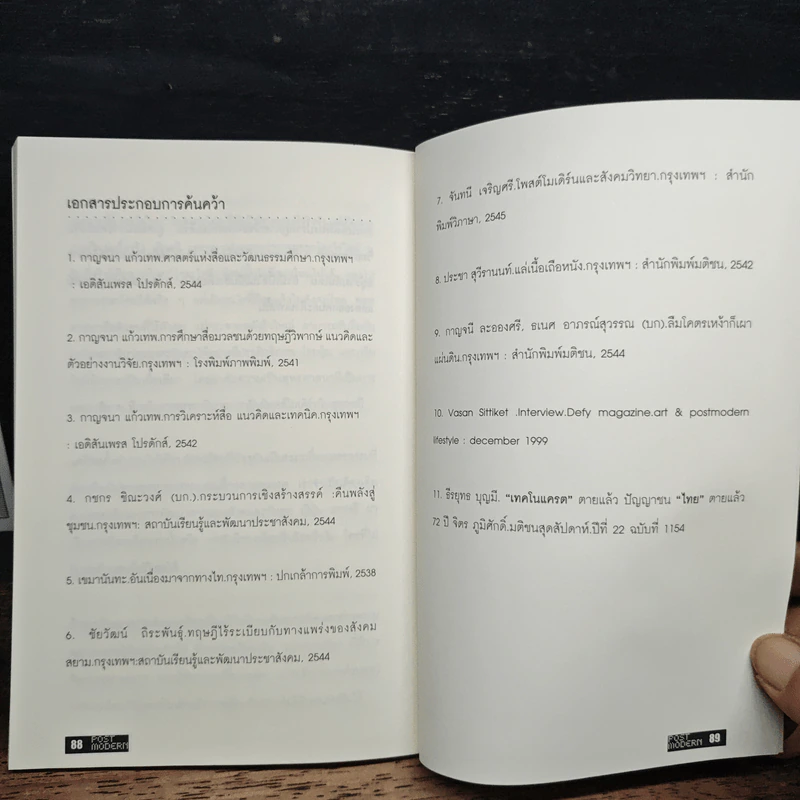 เอกสารประกอบการค้นคว้า
1. กาญจนา แก้วเทพ.ศาสตร์แห่งสื่อและวัฒนธรรมศึกษา.กรุงเทพฯ
: เอดิสันเพรส โปรดักส์, 2544
2. กาญจนา แก้วเทพ.การศึกษาสื่อมวลชนด้วยทฤษฎีวิพากษ์ แนวคิดและ
ตัวอย่างงานวิจัย.กรุงเทพฯ : โรงพิมพ์ภาพพิมพ์, 2541
3. กาญจนา แก้วเทพ.การวิเคราะห์สื่อ แนวคิดและเทคนิค.กรุงเทพฯ
: เอดิสันเพรส โปรดักส์, 2542
4. กชกร ชิณะวงศ์ (บก.).กระบวนการเชิงสร้างสรรค์ :คืนพลังสู่
ชุมชน.กรุงเทพฯ: สถาบันเรียนรู้และพัฒนาประชาสังคม, 2544
5. เขมานันทะ.อันเนื่องมาจากทางไท.กรุงเทพฯ : ปกเกล้าการพิมพ์, 2538
6. ชัยวัฒน์ ถิระพันธุ์.ทฤษฎีไร้ระเบียบกับทางแพร่งของสังคม
สยาม.กรุงเทพฯ:สถาบันเรียนรู้และพัฒนาประชาสังคม, 2544
88 POST
MODERN
7. จันทนี เจริญศรี.โพสต์โมเดิร์นและสังคมวิทยา.กรุงเทพฯ : สำนัก
พิมพ์วิภาษา, 2545
8. ประชา สุวีรานนท์.แล่เนื้อเถือหนัง.กรุงเทพฯ : สำนักพิมพ์มติชน, 2542
9. กาญจนี ละอองศรี, ธเนศ อาภรณ์สุวรรณ (บก).ลืมโคตรเหง้าก็เผา
แผ่นดิน.กรุงเทพฯ : สำนักพิมพ์มติชน, 2544
10. Vasan Sittiket .Interview.Defy magazine.art & postmodern
lifestyle : december 1999
11. ธีรยุทธ บุญมี. “เทคโนแครต” ตายแล้ว ปัญญาชน “ไทย” ตายแล้ว
72 ปี จิตร ภูมิศักดิ์.มติชนสุดสัปดาห์.ปีที่ 22 ฉบับที่ 1154
POST
MODERN 89